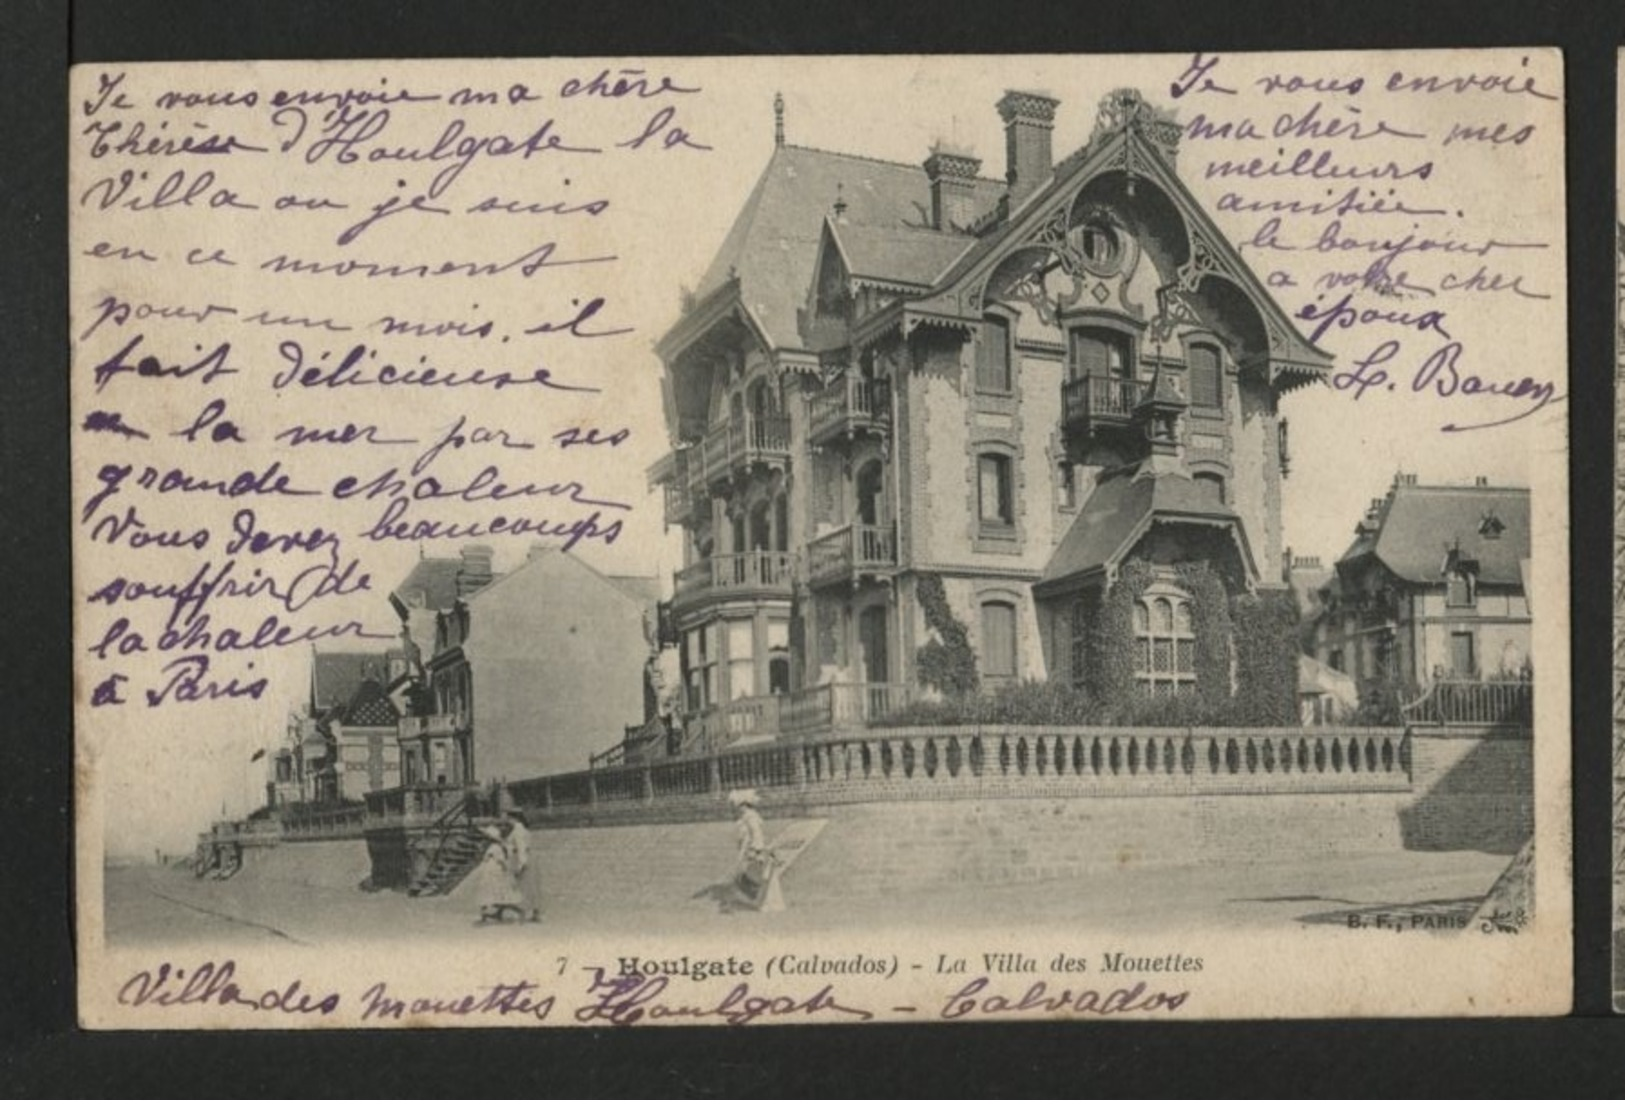 Je vous envoie ma chère
Thérèse d'Houlgate la
Villa ou je suis
en ce moment
pour un mois. il
fait délicieuse
la mer par ses
grande chaleur
Vous devez beaucoups
souffrir de
la chaleur
à Paris
Je vous envoie
ma chère mes
meilleurs
amitiée.
le bonjour
a votre cher
époux
L.
B. F., PARIS
7 - Houlgate (Calvados) - La Villa des Mouettes
Villa des Mouettes Houlgate - Calvados